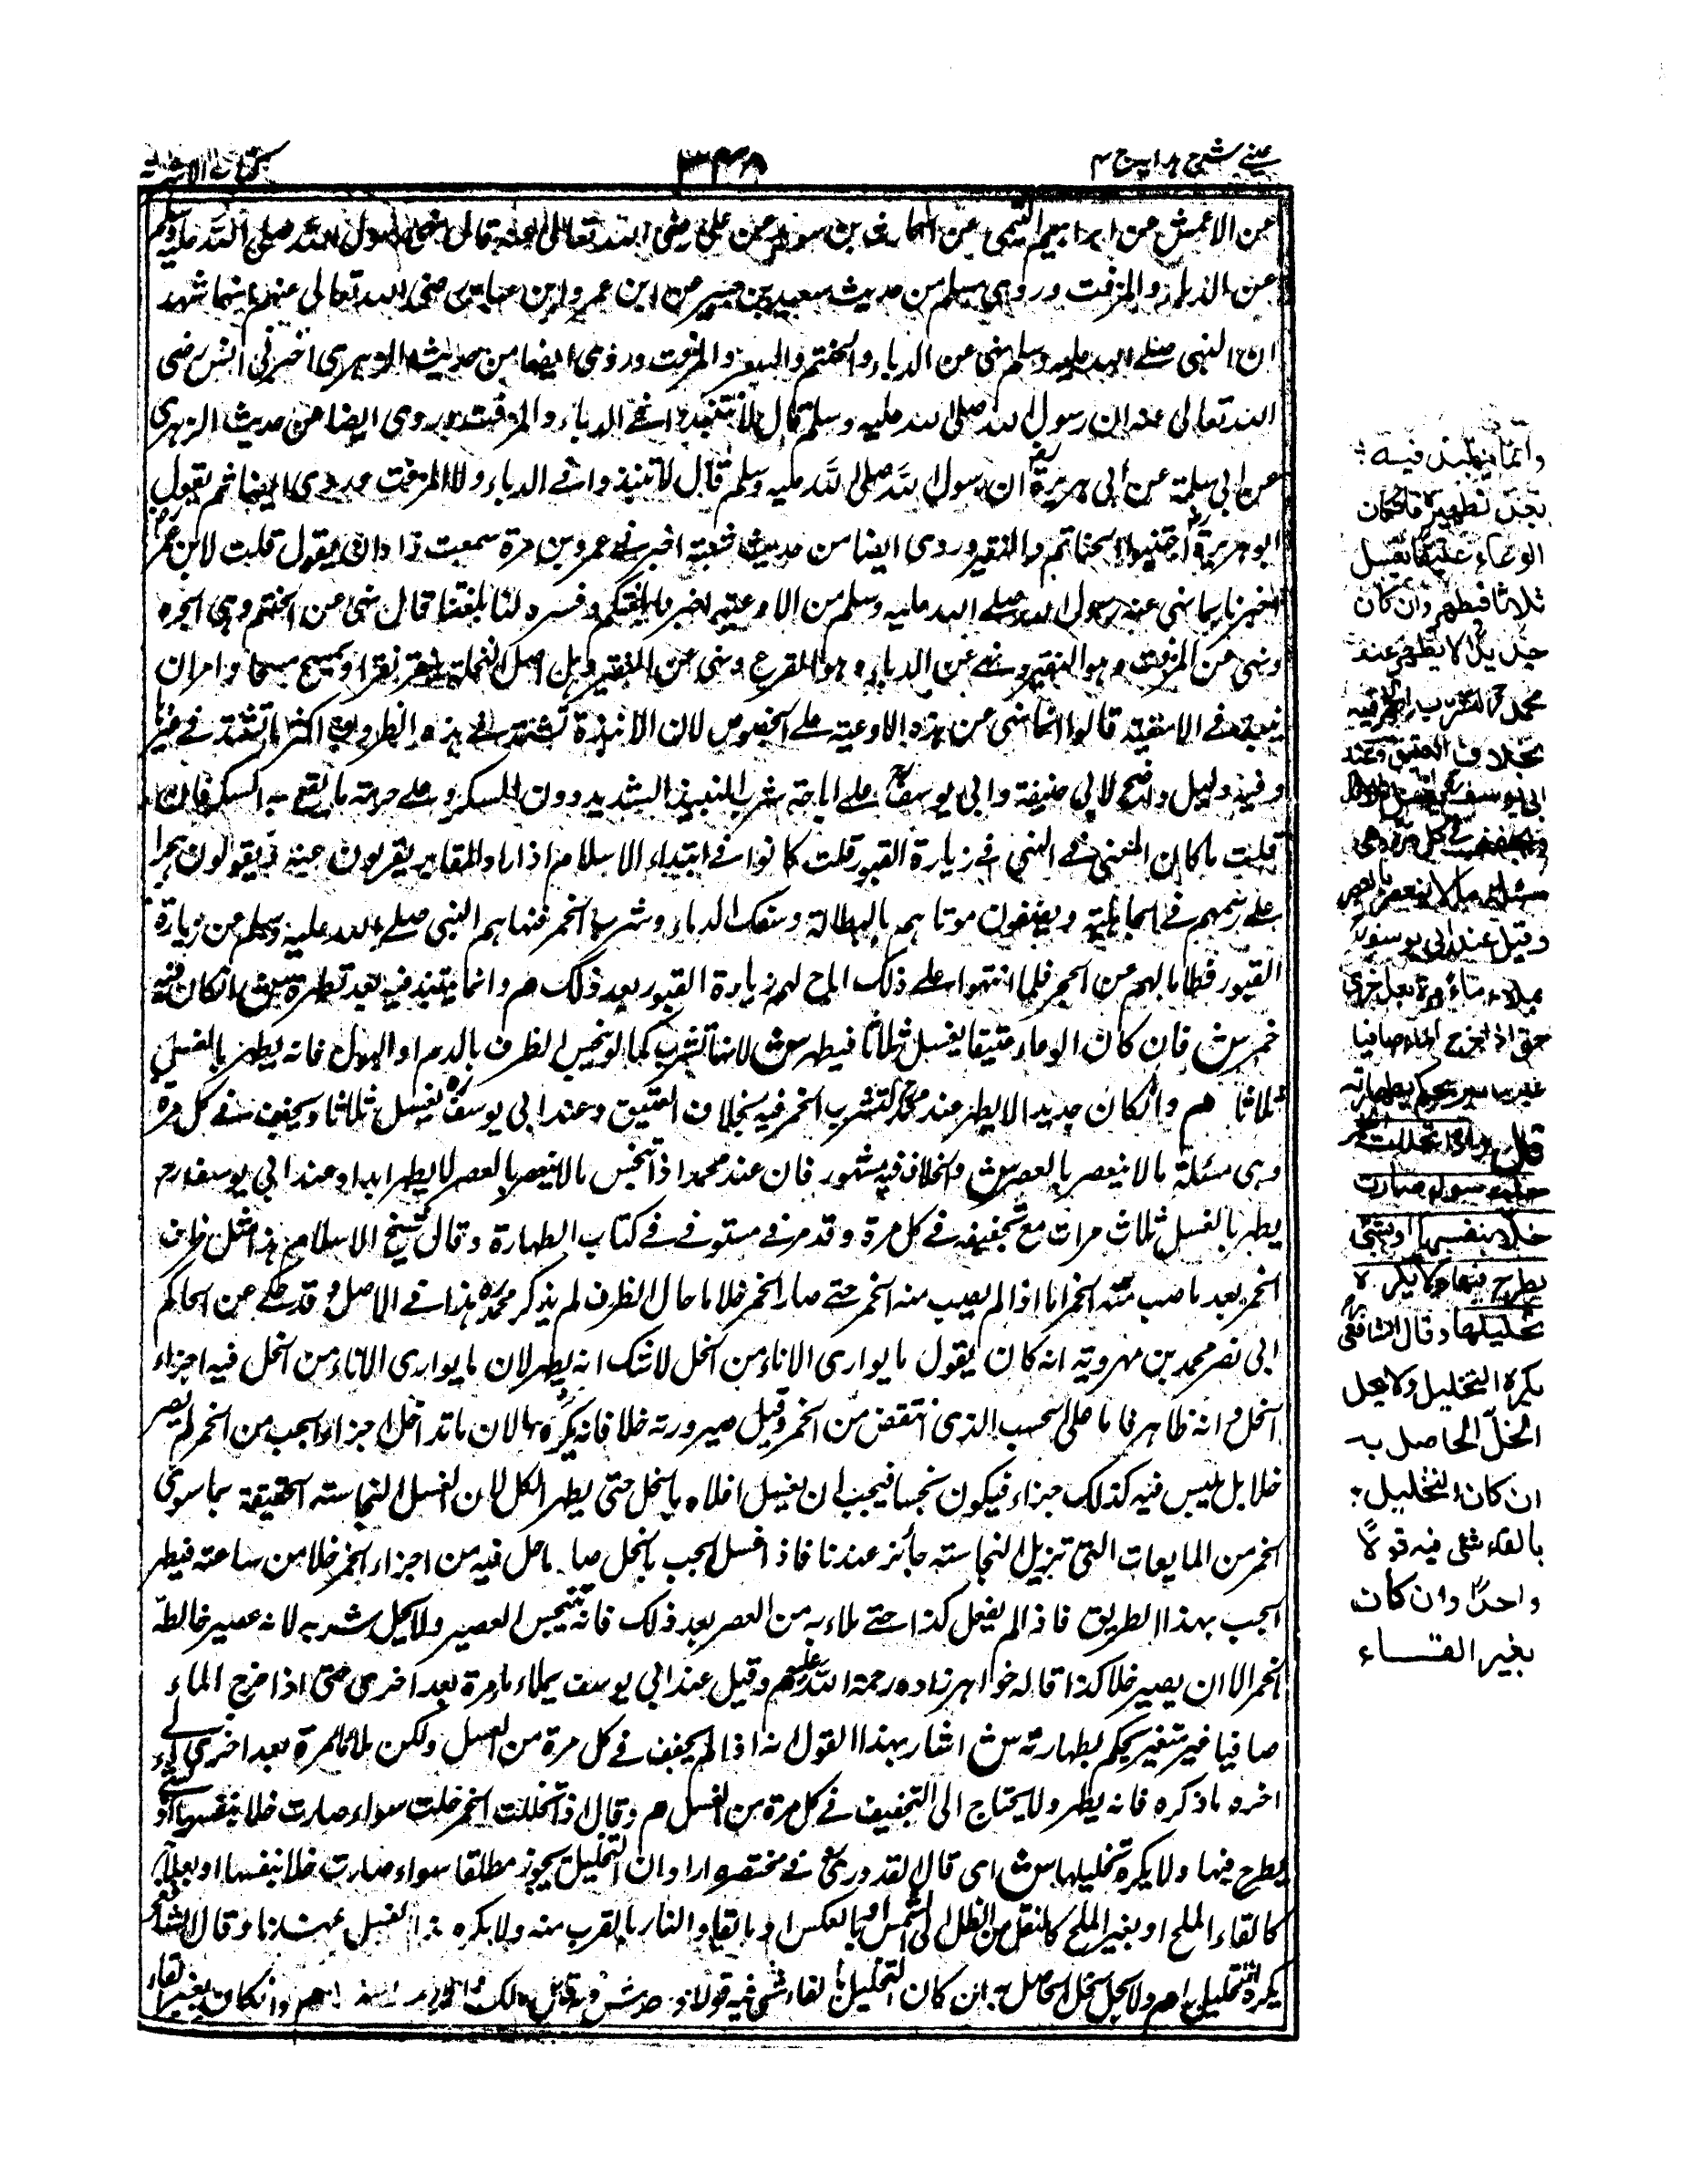 عينى شرح هدايه ج ٤
٣٤٨
كتاب الاشربة
عن الاعمش عن ابراهيم التيمى عن الحارث بن سويد عن على رضى الله تعالى عنه قال نهى رسول الله صلى الله عليه وسلم
عن الدباء والمزفت وروى مسلم من حديث سعيد بن جبير عن ابن عمر وابن عباس رضى الله تعالى عنهم انهما شهد
ان النبى صلى الله عليه وسلم نهى عن الدباء والحنتم والمزفت وروى ايضا من حديث الزهرى اخبرنى انس رضى
الله تعالى عنه ان رسول الله صلى الله عليه وسلم قال لا تنبذوا فى الدباء والمزفت وروى ايضا من حديث الزهرى
عن ابى سلمة عن ابى هريرة ان رسول الله صلى الله عليه وسلم قال لا تنبذوا فى الدباء ولا المزفت وروى ايضا ثم يقول
ابو هريرة اجتنبوا الحناتم والنقير وروى ايضا من حديث شعبة اخبرنى عمرو بن مرة سمعت زاذان يقول قلت لابن عمر
اخبرنا بما نهى عنه رسول الله صلى الله عليه وسلم من الاوعية اخبرنا بلغتكم وفسره لنا بلغتنا قال نهى عن الحنتم وهى الجرة
ونهى عن المزفت وهو المقير ونهى عن الدباء وهو القرع ونهى عن النقير وهى اصل النخلة ينقر نقرا وينسج نسجا وامر ان
ينبذ فى الاسقية قالوا انما نهى عن هذه الاوعية على الخصوص لان الانبذة تشتد فى هذه الظروف اكثر ما تشتد فى غيرها
وفيه دليل واضح لابى حنيفة وابى يوسف على اباحة شرب النبيذ الشديد دون المسكر وعلى حرمة ما يقع به السكر فان
قلت ما كان المعنى فى النهى فى زيارة القبور قلت كانوا فى ابتداء الاسلام اذا زاروا المقابر يقربون منه فيقولون هجرا
على رسمهم فى الجاهلية ويصفون موتاهم بالبطالة وسفك الدماء وشرب الخمر فنهاهم النبى صلى الله عليه وسلم عن زيارة
القبور فطاما لهم عن الهجر فلما انتهوا على ذلك اباح لهم زيارة القبور بعد ذلك هم وانما ينتبذ فيه بعد تطهيره ش انكان فيه
خمر ش فان كان الوعاء عتيقا يغسل ثلاثا فيطهر ش لانها تشرب كما لو تنجس الظرف بالدم او البول فانه يطهر بالغسل
ثلاثا هم وانكان جديدا لا يطهر عند محمد لتشرب الخمر فيه بخلاف العتيق وعند ابى يوسف يغسل ثلاثا ويجفف فى كل مرة
وهى مسئلة ما لا ينعصر بالعصر ش والخلاف فيه مشهور فان عند محمد اذا تنجس ما لا ينعصر بالعصر لا يطهر ابدا وعند ابى يوسف رح
يطهر بالغسل ثلاث مرات مع تجفيفه فى كل مرة وقد مر فى مستوفى فى كتاب الطهارة وقال شيخ الاسلام هذا مثل ظرف
الخمر بعد ما صب منه الخمر اما اذا لم يصب منه الخمر حتى صار الخمر خلا ما حال الظرف لم يذكر محمد هذا فى الاصل وقد حكى عن الحاكم
ابى نصر محمد بن مهرويه انه كان يقول ما يوارى الاناء من الخل لا شك انه يطهر لان ما يوارى الاناء من الخل فيه اجزاء
الخل وانه طاهر فاما اعلى الحب الذى انتقض من الخمر قبل صيرورته خلا فانه يكره لان ما تداخل اجزاء الحب من الخمر لم يصر
خلا بل ليس فيه كذلك جزاء فيكون نجسا فيجب ان يغسل اعلاه بالخل حتى يطهر الكل لان غسل النجاسة الحقيقة بما سوى
الخمر من المايعات التى تزيل النجاسة جائز عندنا فاذا غسل الحب بالخل صار ما حل فيه من اجزاء الخمر خلا من ساعته فيطهر
الحب بهذا الطريق فاذا لم يفعل كذا حتى ملاء به من العصير بعد ذلك فانه تنجس العصير ولا يحل شربه لانه عصير خالطه
الخمر الا ان يصير خلا كذا قاله خواهر زاده رحمة الله عليه هم وقيل عند ابى يوسف يملاء ماء مرة بعد اخرى حتى اذا خرج الماء
صافيا غير متغير يحكم بطهارته ش اشار بهذا القول انه اذا لم يجفف فى كل مرة من الغسل ولكن ملاء مرة بعد اخرى الى
اخره ما ذكره فانه يطهر ولا يحتاج الى التجفيف فى كل مرة من الغسل هم وقال اذا تخللت الخمر حلت سواء صارت خلا بنفسها او بشئ
يطرح فيها ولا يكره تخليلها ش اى قال القدورى فى مختصره اراد ان التخليل يجوز مطلقا سواء صارت خلا بنفسها او بعلاج
كالقاء الملح او بغير الملح كالنقل من الظل الى الشمس او بالعكس او بايقاد النار بالقرب منه ولا يكره هذا الفعل عندنا وقال الشافعى
يكره التخليل هم ولا يحل الخل الحاصل به ان كان التخليل بالقاء شئ فيه قولا واحدا ش وبه قال مالك واحمد هم وانكان بغير القاء
وانما ينتبذ فيه
بعد تطهيره فان كان
الوعاء عتيقا يغسل
ثلاثا فيطهر وان كان
جديدا لا يطهر عند
محمد لتشرب الخمر فيه
بخلاف العتيق وعند
ابى يوسف يغسل ثلاثا
ويجفف فى كل مرة وهى
مسئلة ما لا ينعصر بالعصر
وقيل عند ابى يوسف
يملاء ماء مرة بعد اخرى
حتى اذا خرج الماء صافيا
غير متغير يحكم بطهارته
قال واذا تخللت الخمر
حلت سواء صارت
خلا بنفسها او بشئ
يطرح فيها ولا يكره
تخليلها وقال الشافعى
يكره التخليل ولا يحل
الخل الحاصل به
ان كان التخليل
بالقاء شئ فيه قولا
واحدا وان كان
بغير القاء